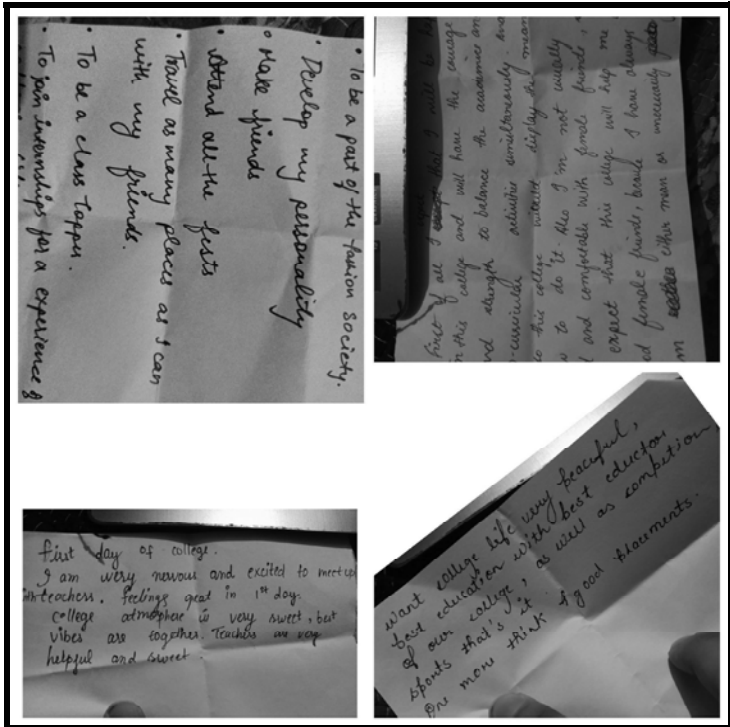 • To be a part of the fashion society.
• Develop my personality
• Make friends
• Attend all the fests
• Travel as many places as I can
with my friends.
• To be a class topper.
• To join internships for a experience &
First of all I that I will be
this college and will have the courage
strength to balance the academics an
-curricular activities simultaneously and
this college display of mean
to do it. Also I'm not usually
and comfortable with female friends,
expect that this college will help me
female friends, because I have always
either mean or unnecessarily
first day of college.
I am very nervous and excited to meet up
teachers. feelings great in 1st day.
college atmosphere is very sweet, but
vibes are together. Teachers are very
helpful and sweet.
want college life very peaceful,
best education with best eductor
of our college, as well as compettion
sports that's it.
One more think & good placements.